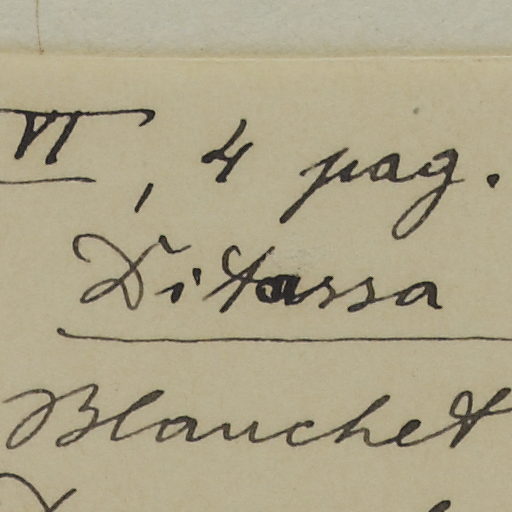 VI, 4 pag.
Ditassa
Blanchet